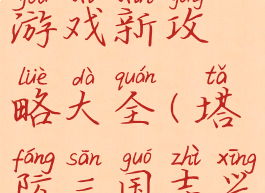 游戏新攻
lüè dà quán tǎ
略大全(塔
fáng sān guó zhì xīng
防三国志兴